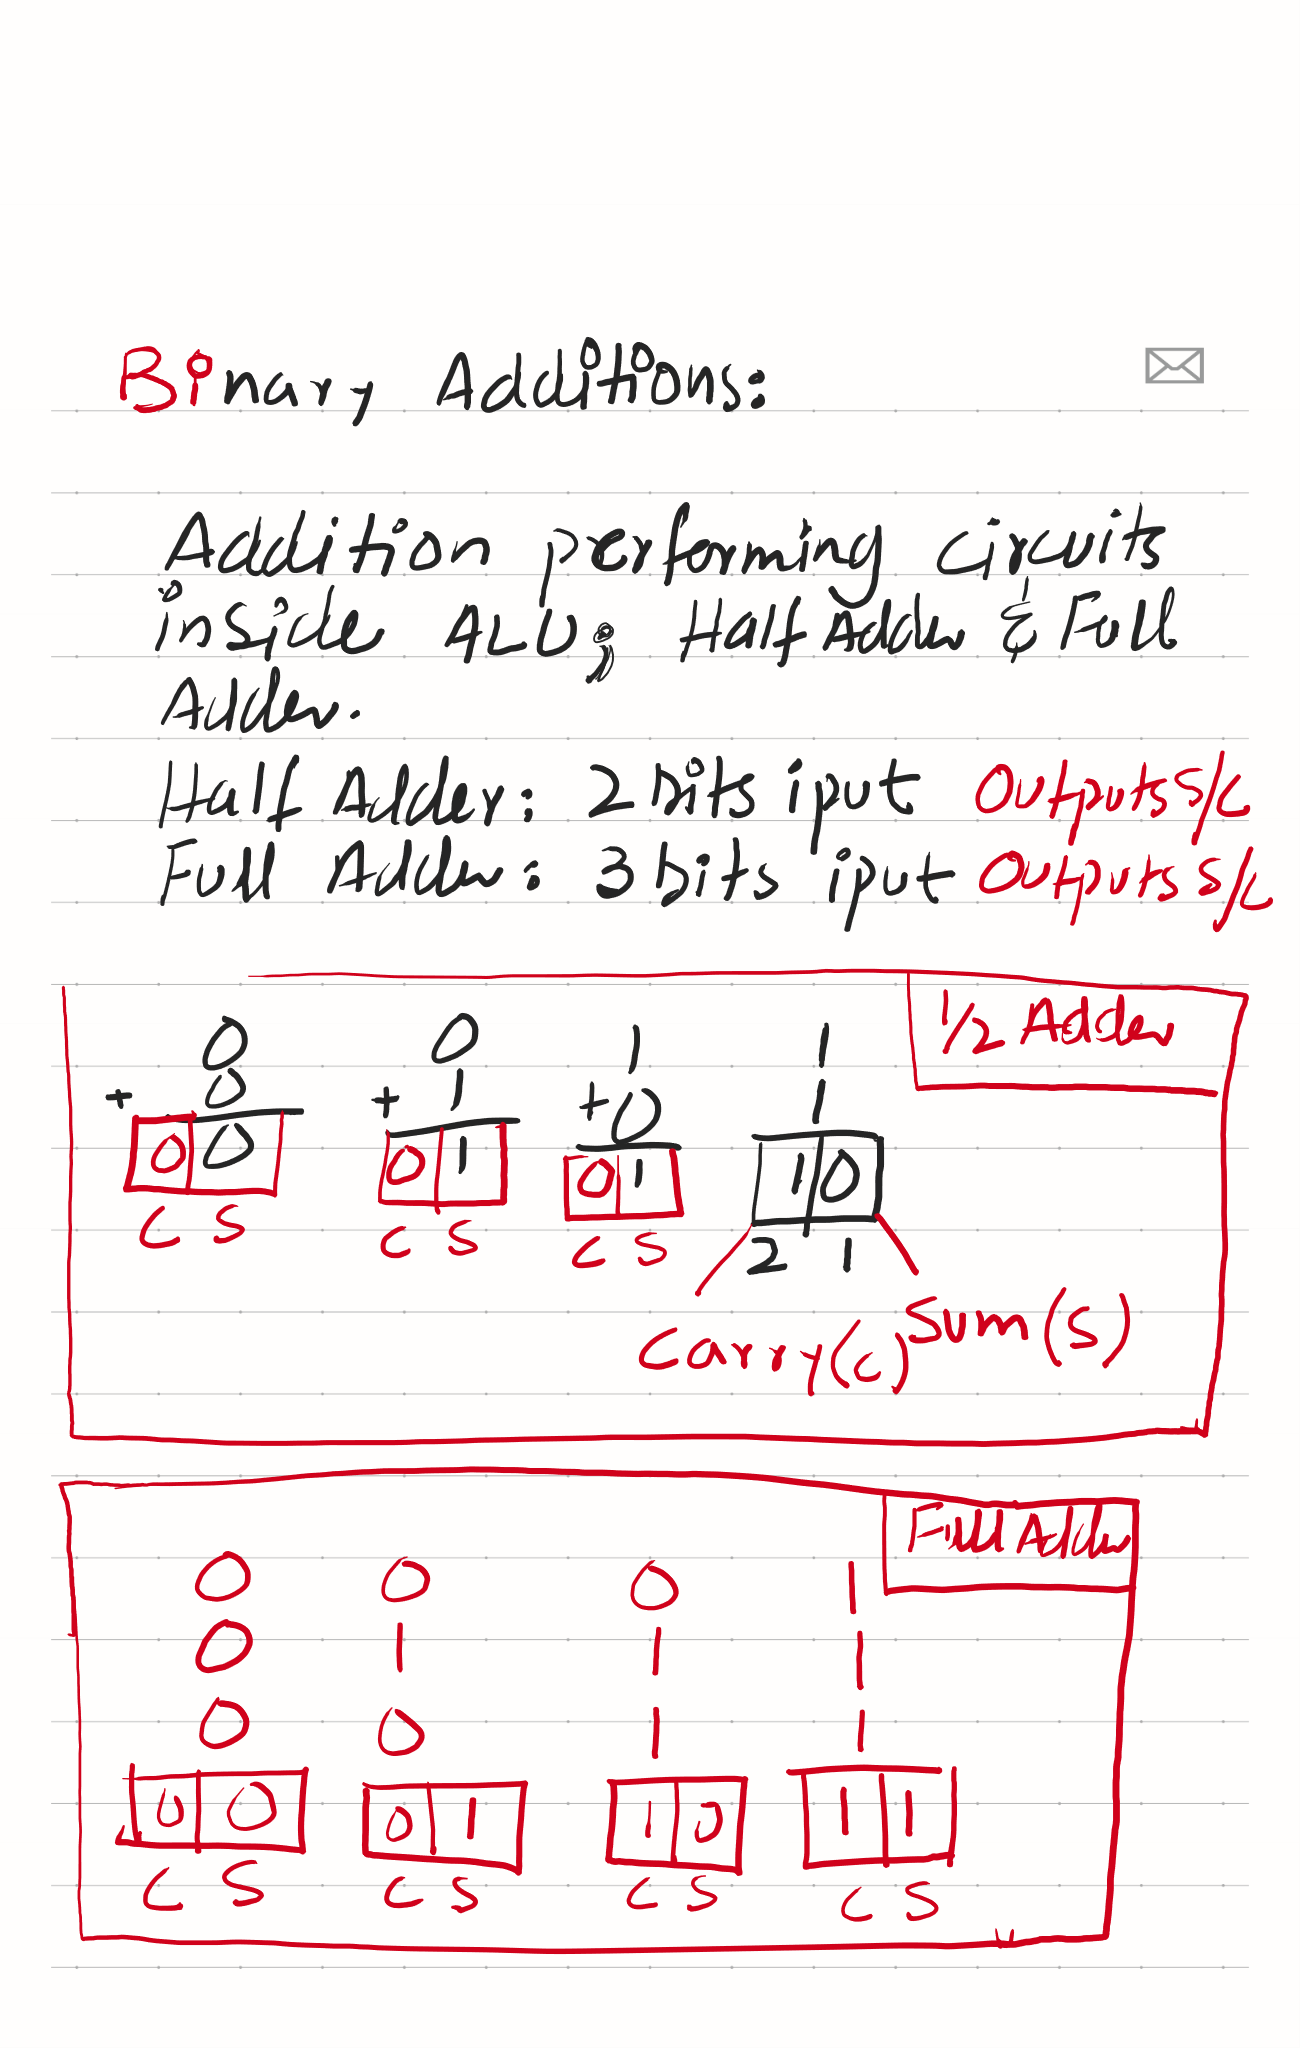 Binary Additions:
Addition performing circuits
inside ALU; Half Adder & Full
Adder.
Half Adder: 2 bits iput Outputs S/C
Full Adder: 3 bits iput Outputs S/C
1/2 Adder
0 0 1 1
+ 0 + 1 + 0 1
0 0 0 1 0 1 1 0
C S C S C S 2 1
Carry(C) Sum(S)
Full Adder
0 0 0 1
0 1 1 1
0 0 1 1
0 0 0 1 1 0 1 1
C S C S C S C S